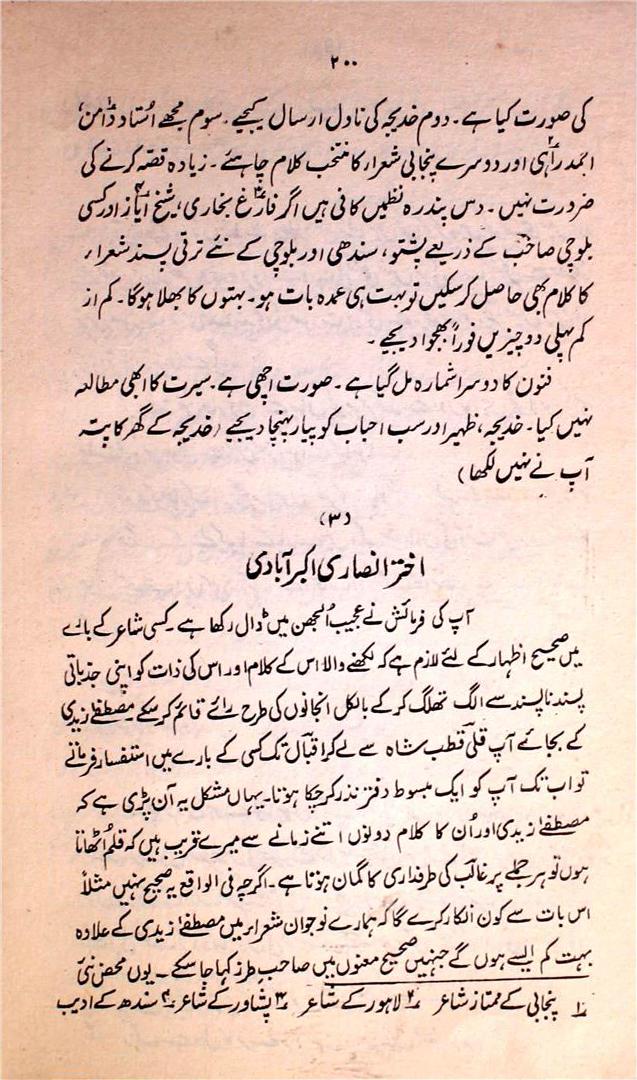 ۲۰۰
کی صورت کیا ہے۔ دوم خدیجہ کی ناول ارسال کیجیے۔ سوم مجھے استاد دامن،۱
احمد راہی۲ اور دوسرے پنجابی شعراء کا منتخب کلام چاہیئے۔ زیادہ قصہ کرنے کی
ضرورت نہیں۔ دس پندرہ نظمیں کافی ہیں اگر فارغ بخاری۳، شیخ ایاز۴ اور کسی
بلوچی صاحب کے ذریعے پشتو، سندھی اور بلوچی کے نئے ترقی پسند شعراء
کا کلام بھی حاصل کر سکیں تو بہت ہی عمدہ بات ہو۔ بہتوں کا بھلا ہوگا۔ کم از
کم پہلی دو چیزیں فوراً بھجوا دیجیے۔
فنون کا دوسرا شمارہ مل گیا ہے۔ صورت اچھی ہے۔ سیرت کا ابھی مطالعہ
نہیں کیا۔ خدیجہ، ظہیر اور سب احباب کو پیار پہنچا دیجیے (خدیجہ کے گھر کا پتہ
آپ نے نہیں لکھا)
(۳)
اختر انصاری اکبر آبادی
آپ کی فرمائش نے عجیب الجھن میں ڈال رکھا ہے۔ کسی شاعر کے بارے
میں صحیح اظہار کے لئے لازم ہے کہ لکھنے والا اس کے کلام اور اس کی ذات کو اپنی جذباتی
پسند ناپسند سے الگ تھلگ کر کے بالکل انجانوں کی طرح رائے قائم کر سکے۔ مصطفےٰ زیدی
کے بجائے آپ قلی قطب شاہ سے لے کر اقبال تک کسی کے بارے میں استفسار فرماتے
تو اب تک آپ کو ایک مبسوط دفتر نذر کر چکا ہوتا۔ یہاں مشکل یہ آن پڑی ہے کہ
مصطفےٰ زیدی اور اُن کا کلام دونوں اتنے زمانے سے میرے قریب ہیں کہ قلم اُٹھاتا
ہوں تو ہر جملے پر غالب کی طرفداری کا گمان ہوتا ہے۔ اگرچہ فی الواقع یہ صحیح نہیں مثلاً
اس بات سے کون انکار کرے گا کہ ہمارے نوجوان شعراء میں مصطفےٰ زیدی کے علاوہ
بہت کم ایسے ہوں گے جنہیں صحیح معنوں میں صاحبِ طرز کہا جا سکے۔ یوں محض نئی
۱ پنجابی کے ممتاز شاعر ۲ لاہور کے شاعر ۳ پشاور کے شاعر ۴ سندھ کے ادیب